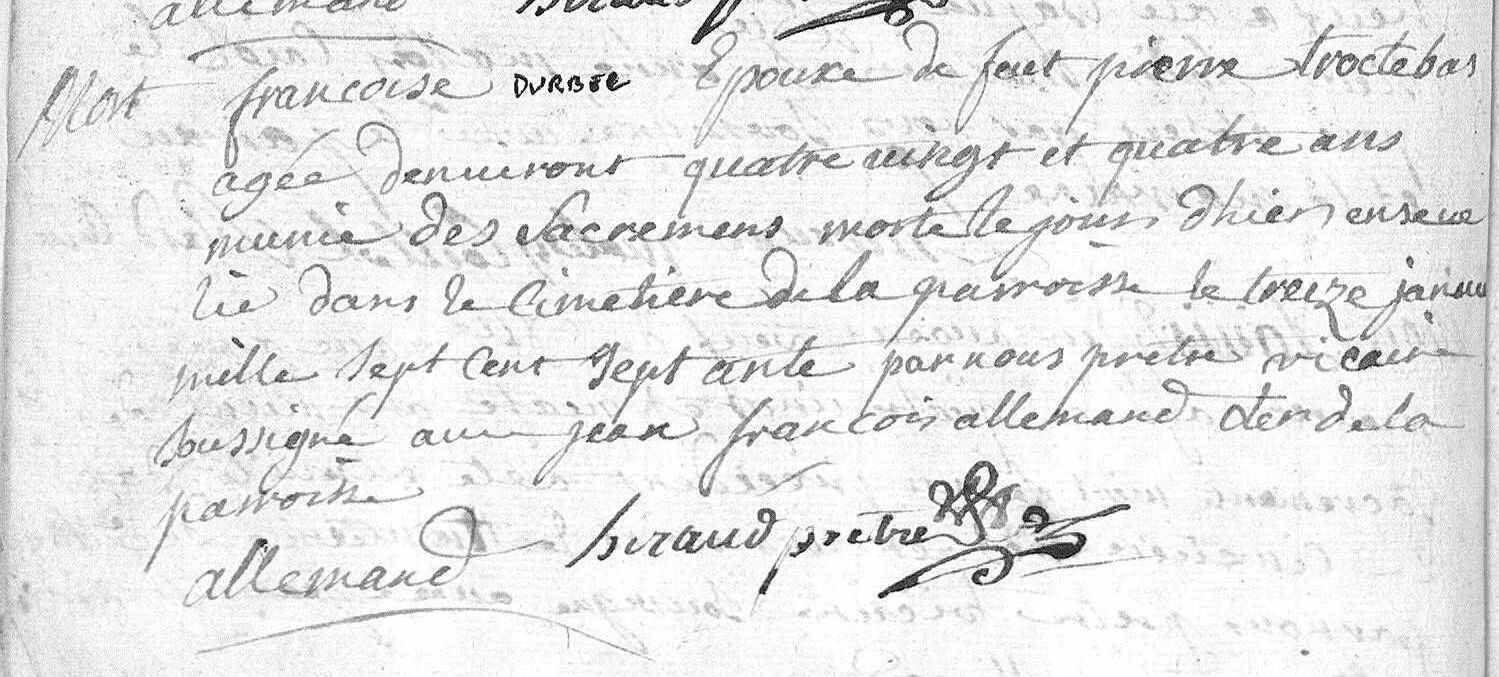 allemand
Mort françoise DURBEC Epouxe de feut pierre troctebas
agée denuiront quatre vingt et quatre ans
munie des Sacremens morte le jour dhier enseve
lie dans le Cimetière de la parroisse le treze janvie
mille sept cent Septante par nous prêtre vicaire
soussigné avec jean françois allemand clerc de la
parroisse
allemand beraud prêtre